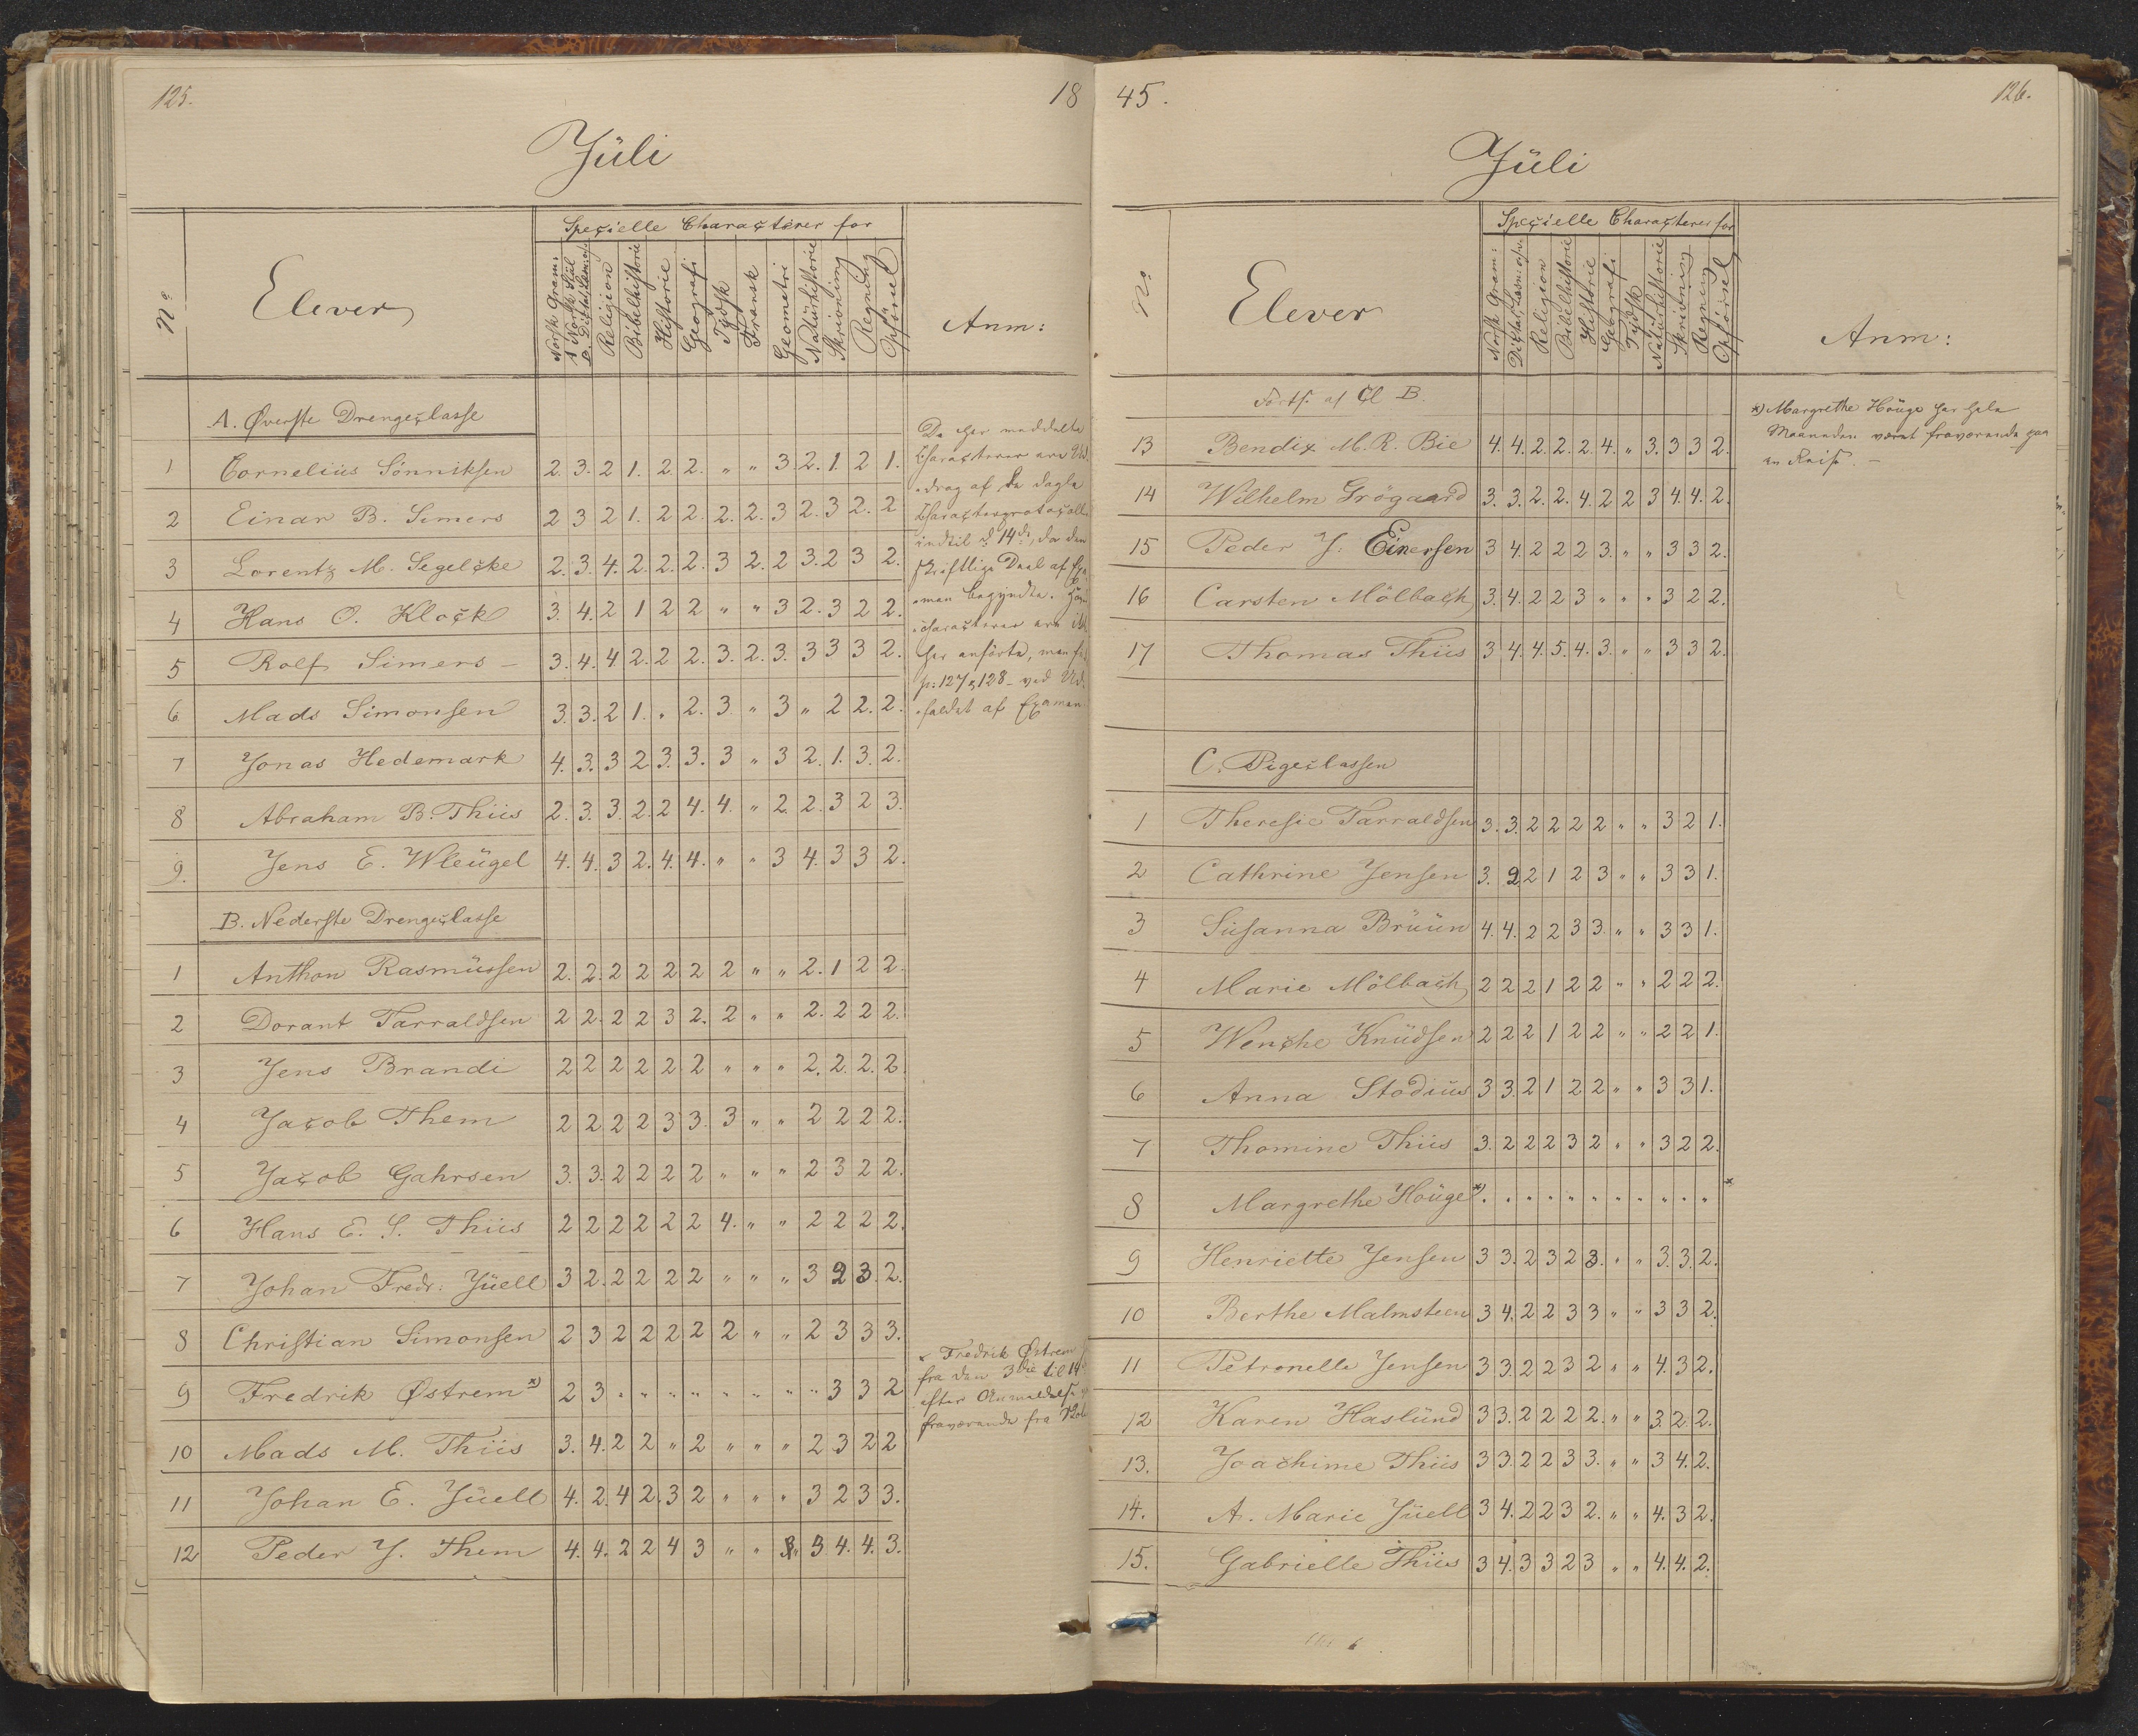 125.
18
Jüli
Nº
Elever
Specielle Characterer for
Norsk Gram:
A Norsk Stiil
B. Dictat, Læsn: osv.
Religion
Bibelhistorie
Historie
Geografi
Tydsk
Fransk
Geometri
Natürhistorie
Skrivning
Regning
Opførsel
Anm:
A. Øverste Drengeclasse
1 Cornelius Sönniksen 2. 3. 2 1. 2 2. " " 3. 2. 1. 2 1.
2 Einar B. Simers 2 3 2 1. 2 2. 2. 2. 3 2. 3 2. 2
3 Lorentz M. Segelcke 2. 3. 4. 2. 2. 2. 3 2. 2 3. 2 3 2.
4 Hans O. Klock 3. 4. 2 1 2 2 " " 3 2. 3 2 2.
5 Rolf Simers – 3. 4. 4 2. 2 2. 3. 2. 3. 3 3 3 2.
6 Mads Simonsen 3. 3. 2 1. " 2. 3 " 3 " 2 2. 2.
7 Jonas Hedemark 4. 3. 3 2 3. 3. 3 " 3 2. 1. 3. 2.
8 Abraham B. Thiis 2. 3. 3. 2. 2 4. 4. " 2. 2. 3 2 3.
9. Jens E. Wleügel 4. 4. 3 2. 4. 4. " " 3 4. 3 3 2.
De her meddelte
Characterer ere Ud-
drag af de dagle
Characterprotocoller
indtil d 14de, da den
skriftlige Deel af Exa-
men begyndte.
characterer ere
her anførte, men
p: 127 & 128 – ved Ud-
faldet af Examen
B. Nederste Drengeclasse
1 Anthon Rasmüssen 2. 2. 2 2 2 2 2 " " 2. 1 2 2.
2 Dorant Tarraldsen 2 2. 2 2 3 2. 2 " " 2. 2 2 2.
3 Jens Brandi 2 2 2 2 2 2 " " " 2. 2. 2. 2.
4 Jacob Them 2 2 2 2 3 3. 3 " " 2 2 2 2.
5 Jacob Gahrsen 3. 3. 2 2 2 2 " " " 2 3 2 2.
6 Hans E. S. Thiis 2 2 2 2 2 2 4. " " 2 2 2 2.
7 Johan Fredr. Jüell 3 2. 2 2 2 2 " " " 3 2 3. 2.
8 Christian Simonsen 2 3 2 2 2 2 2 " " 2 3 3 3.
9 Fredrik Østrem *) 2 3 " " " " " " " " 3 3 2
10 Mads M. Thiis 3. 4. 2 2 " 2 " " " 2 3 2 2
11 Johan E. Jüell 4. 2. 4 2. 3 2 " " " 3 2 3 3.
12 Peder J. Them 4. 4. 2 2 4 3 " " " 3 4. 4. 3.
* Fredrik Østrem
fra den 3die til 14
efter Anmeldelse
fraværende fra Skole
45.
126.
Jüli
No
Elever
Specielle Characterer for
Norsk Gram:
Dictat, Læsn: osv.
Religion
Bibelhistorie
Historie
Geografi
Tydsk
Natürhistorie
Skrivning
Regning
Opførsel
Anm:
Forts. af Cl B.
13 Bendix M. R. Bie 4. 4. 2. 2. 2. 4. " 3. 3 3 2.
14 Wilhelm Grögaard 3. 3. 2. 2. 4. 2 2 3 4 4. 2.
15 Peder J. Einersen 3 4. 2 2 2 3. " " 3 3 2.
16 Carsten Mölbach 3. 4. 2 2 3 " " " 3 2 2.
17 Thomas Thiis 3 4. 4. 5. 4. 3. " " 3 3 2.
*) Margrethe Houge har hele
Maaneden været fraværende paa
en Reise. –
C. Pigeclassen
1 Theresie Tarraldsen 3. 3. 2 2 2 2 " " 3 2 1.
2 Cathrine Jensen 3. 2 2 1 2 3 " " 3 3 1.
3 Susanna Brüün 4. 4. 2 2 3 3. " " 3 3 1.
4 Marie Mölbach 2 2 2 1 2 2 " " 2 2 2.
5 Wenche Knüdsen 2 2 2 1 2 2 " " 2 2 1.
6 Anna Stodiüs 3 3. 2 1 2 2 " " 3 3 1.
7 Thomine Thiis 3. 2 2 2 3 2 " " 3 2 2.
8 Margrethe Houge *) " " " " " " " " " " " *
9 Henriette Jensen 3 3. 2 3 2 3. " " 3. 3. 2.
10 Berthe Malmsteen 3 4. 2 2 3 3 " " 3 3 2.
11 Petronelle Jensen 3 3. 2 2 3 2 " " 4. 3 2.
12 Karen Haslünd 3 3. 2 2 2 2. " " 3. 2 2.
13. Joachime Thiis 3 3. 2 2 3 3. " " 3 4. 2.
14. A. Marie Jüell 3 4. 2 2 3 2. " " 4. 3 2.
15. Gabrielle Thiis 3 4. 3 3 2 3 " " 4. 4. 2.